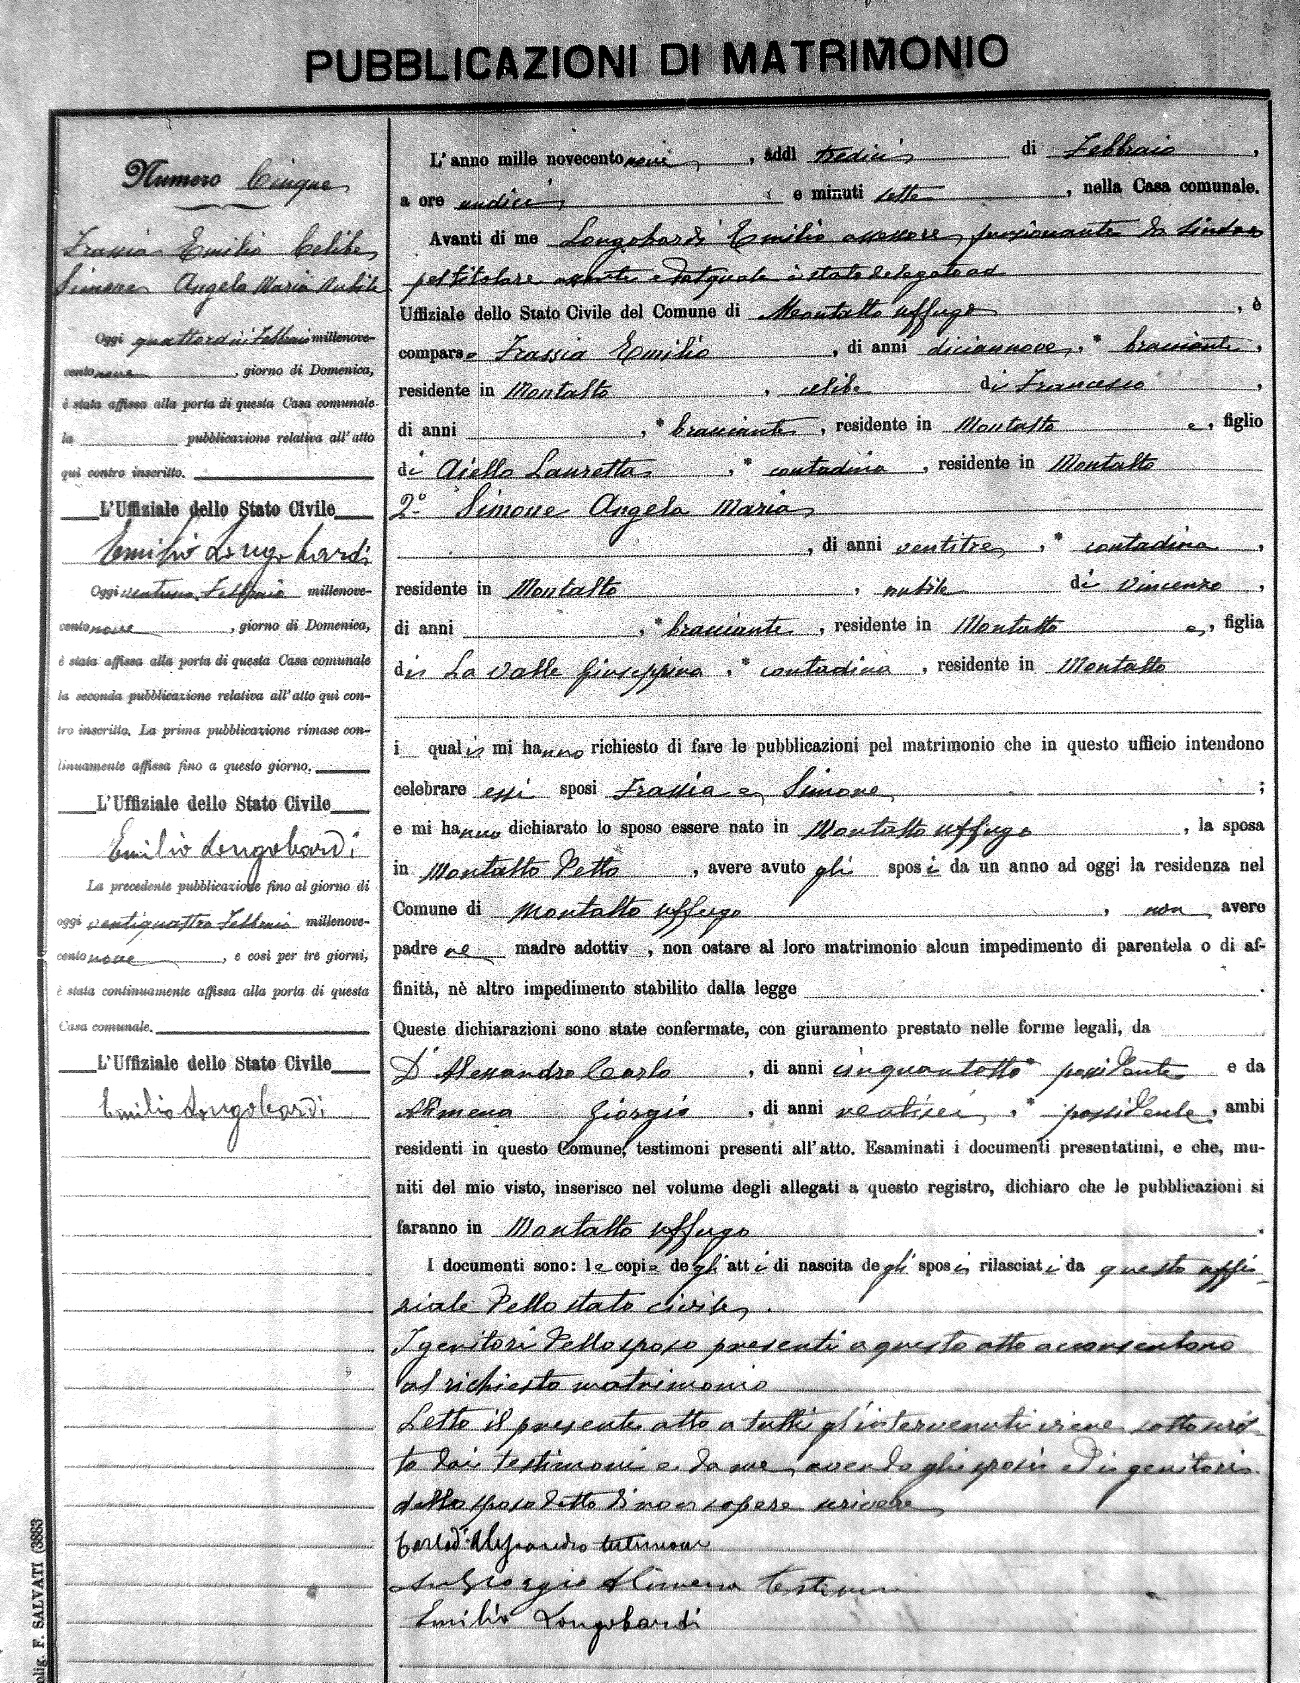 PUBBLICAZIONI DI MATRIMONIO
Numero Cinque
Frassia Emilio Celibe
Simone Angela Maria Nubile
Oggi quattordici Febbraio millenove-
cento nove, giorno di Domenica,
è stata affissa alla porta di questa Casa comunale
la pubblicazione relativa all'atto
qui contro inscritto.
L'Uffiziale dello Stato Civile
Emilio Longobardi
Oggi ventuno Febbraio millenove-
cento nove, giorno di Domenica,
è stata affissa alla porta di questa Casa comunale
la seconda pubblicazione relativa all'atto qui con-
tro inscritto. La prima pubblicazione rimase con-
tinuamente affissa fino a questo giorno.
L'Uffiziale dello Stato Civile
Emilio Longobardi
La precedente pubblicazione fino al giorno di
oggi ventiquattro Febbraio millenove-
cento nove, e così per tre giorni,
è stata continuamente affissa alla porta di questa
Casa comunale.
L'Uffiziale dello Stato Civile
Emilio Longobardi
L'anno mille novecento nove, addì tredici di Febbraio,
a ore undici e minuti sette, nella Casa comunale.
Avanti di me Longobardi Emilio assessore funzionante da Sindaco
pel titolare assente e dal quale è stato delegato ad
Uffiziale dello Stato Civile del Comune di Montalto Uffugo, è
comparso Frassia Emilio, di anni diciannove, * bracciante,
residente in Montalto, celibe di Francesco,
di anni , * bracciante, residente in Montalto e, figlio
di Aiello Lauretta, * contadina, residente in Montalto
2° Simone Angela Maria
, di anni ventitre, * contadina,
residente in Montalto, nubile di Vincenzo,
di anni , * bracciante, residente in Montalto e, figlia
di La Valle Giuseppina, * contadina, residente in Montalto
i quali mi hanno richiesto di fare le pubblicazioni pel matrimonio che in questo ufficio intendono
celebrare essi sposi Frassia e Simone;
e mi hanno dichiarato lo sposo essere nato in Montalto Uffugo, la sposa
in Montalto detto, avere avuto gli sposi da un anno ad oggi la residenza nel
Comune di Montalto Uffugo, non avere
padre ne madre adottiv , non ostare al loro matrimonio alcun impedimento di parentela o di af-
finità, nè altro impedimento stabilito dalla legge .
Queste dichiarazioni sono state confermate, con giuramento prestato nelle forme legali, da
D'Alessandro Carlo, di anni cinquantotto * possidente e da
Alimena Giorgio, di anni ventisei, * possidente, ambi
residenti in questo Comune, testimoni presenti all'atto. Esaminati i documenti presentatimi, e che, mu-
niti del mio visto, inserisco nel volume degli allegati a questo registro, dichiaro che le pubblicazioni si
faranno in Montalto Uffugo.
I documenti sono: le copie degli atti di nascita degli sposi rilasciati da questo uffi-
ziale dello stato civile.
I genitori dello sposo presenti a questo atto acconsentono
al richiesto matrimonio
Letto il presente atto a tutti gl'intervenuti viene sottoscrit-
to dai testimoni e da me, avendo gli sposi ed i genitori
dello sposo detto di non sapere scrivere
Carlo D'Alessandro testimone
Giorgio Alimena testimone
Emilio Longobardi
olig. F. SALVATI (3883